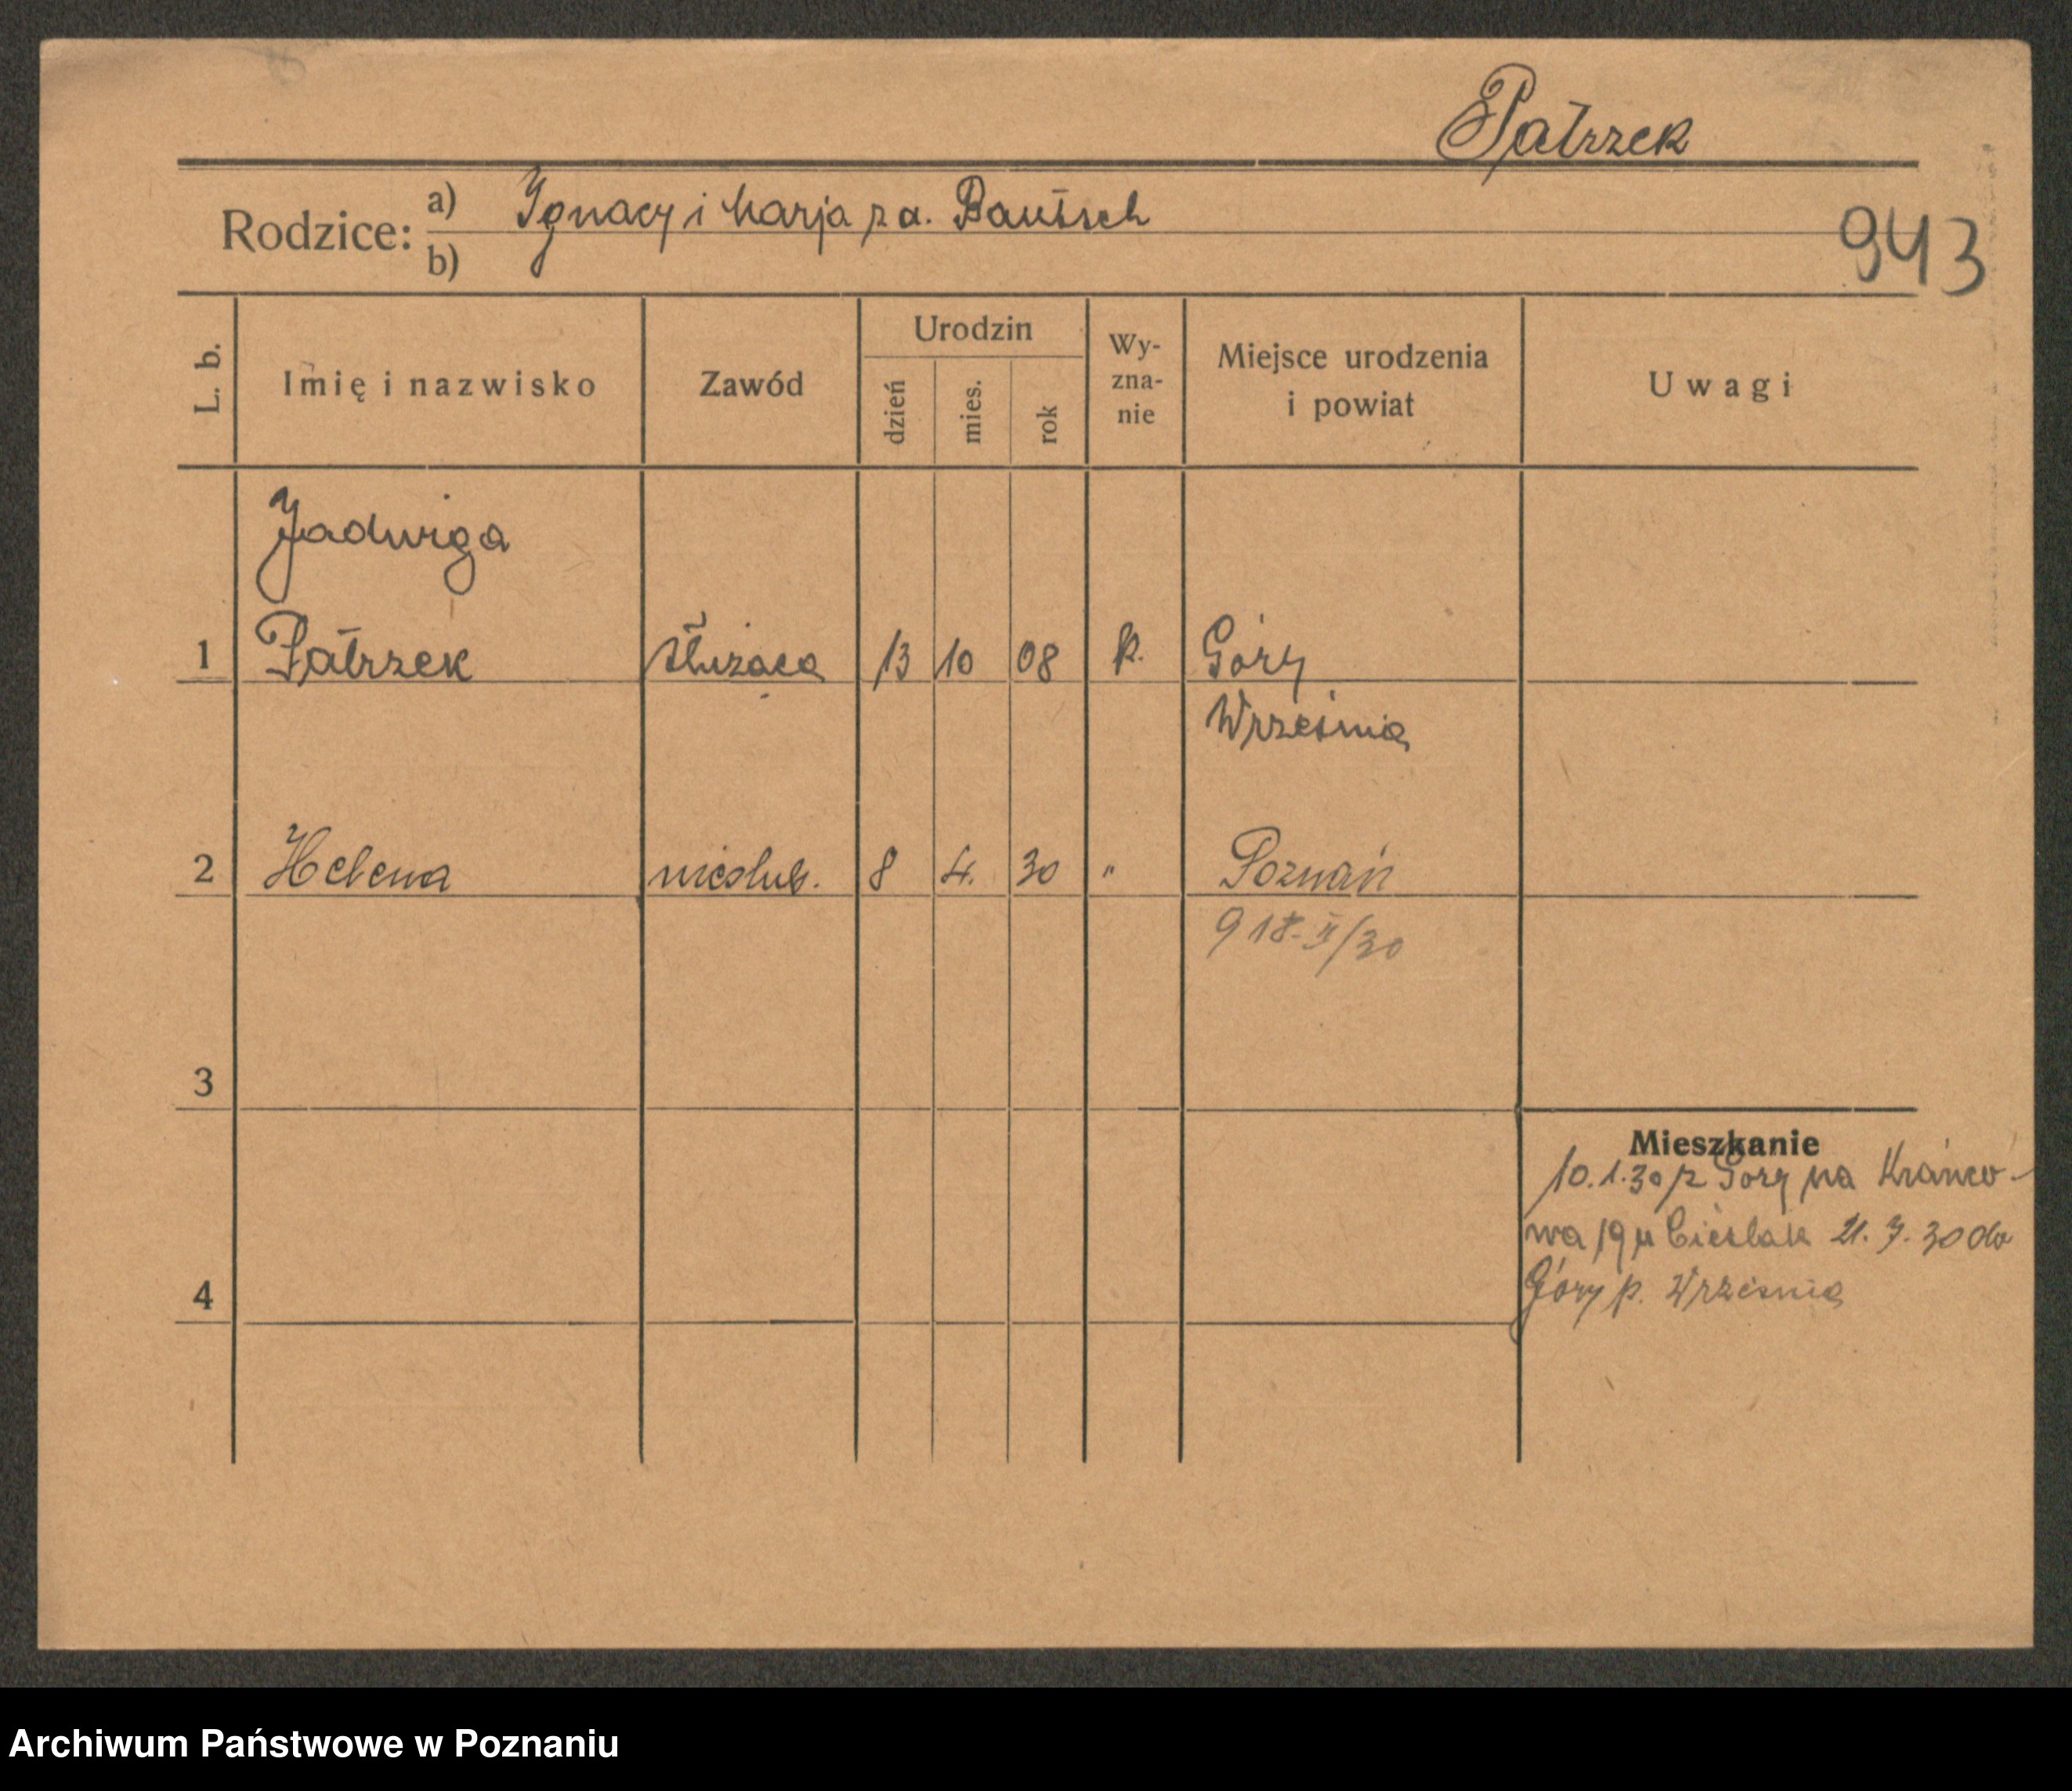 Patrzek
Rodzice: a) Ignacy i Marja z d. Bautsch
b)
943
L. b. Imię i nazwisko Zawód Urodzin dzień mies. rok Wy-zna-nie Miejsce urodzenia i powiat Uwagi
Jadwiga
1 Patrzek służąca 13 10 08 k. Góry
Września
2 Helena nieślub. 8 4. 30 " Poznań
918-II/30
3
Mieszkanie
10.1.30 z Góry na Krańco-
wa 19 u Cieślak 21. 7. 30 do
4 Góry p. Września
Archiwum Państwowe w Poznaniu